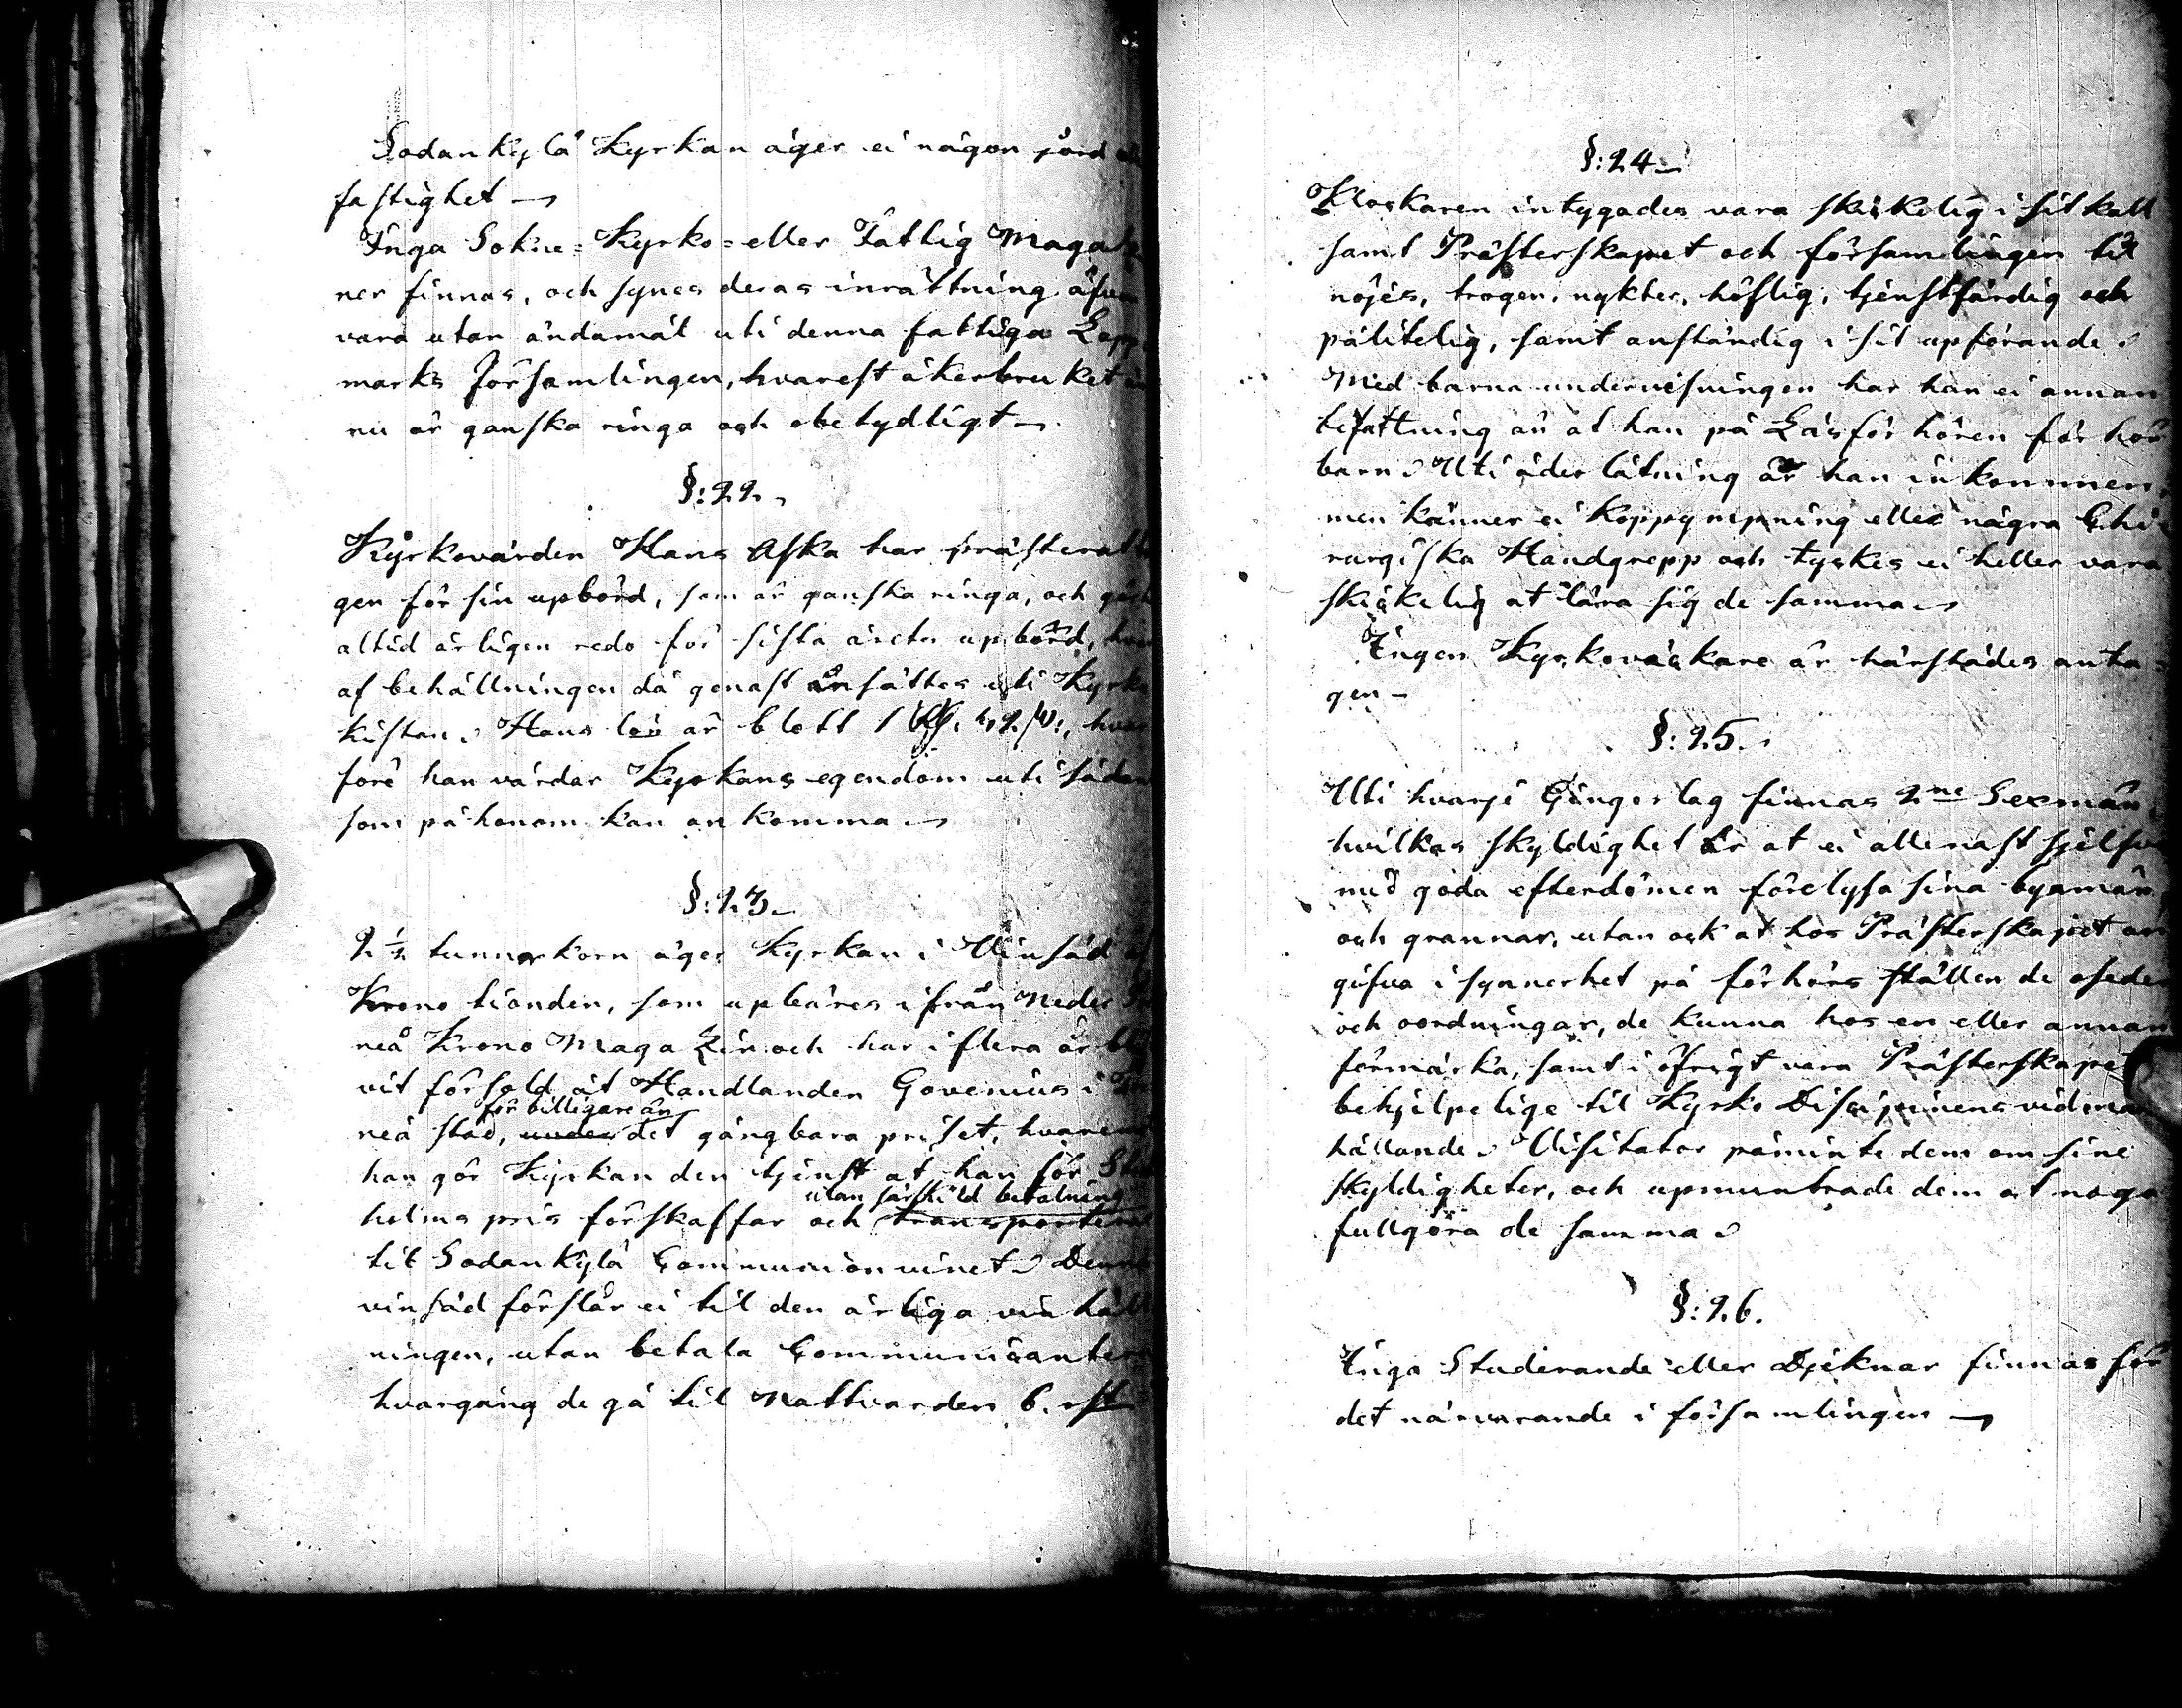 Sodankylä Kyrkan äger ei någon jord
fastighet
Inga Sokne- Kyrko- eller Fattig Maga
ner finnas, och synes deras inrättning äfven
vara utan ändamål uti denna fattiga Lapp
marks församlingen, hvarest åkerbruket
nu är ganska ringa och obetydligt
§: 22.
Kyrkovärden Hans Aska har prästerat
gen för sin upbörd, som är ganska ringa, och
altid årligen redo för sista årets upbörd,
af behållningen då genast insättes uti Kyrk
kistan. Hans lön är blott 1
före han vårdar Kyrkans egendom uti sådan
som på honom kan ankomma
§: 23.
2 1/2 tunnor korn äger Kyrkan i Vinsäd
Krono tionden, som upbäres ifrån Neder
neå Krono Magazin och har i flera år
vit försåld åt Handlanden Govenius i
för billigare än
neå stad, under det gångbara priset,
han gör Kyrkan den tjenst at han för
utan särskild betalning
holms pris förskaffar och transporterar
til Sodankylä Communion vinet. Denna
vinsäd förslår ei til den årliga vin
ningen, utan betala Communicanter
hvargång de gå til Nattvarden 6.
§: 24.
Klockaren intygades vara skickelig i sit kall
samt Prästerskapet och församlingen til
nöjes, trogen, nykter, höflig, tjenstfärdig och
pålitelig, samt anständig i sit upförande.
Med barna undervisningen har han ei annan
befattning än at han på Läsförhören förhör
barn. Uti åderlåtning är han inkommen,
men känner ei Koppympning eller några Chi
rurgiska Handgrepp och tyckes ei heller vara
skickelig at lära sig de samma
Ingen Kyrkoväckare är härstädes anta-
gen
§: 25.
Uti hvarje Gingerlag finnas 2ne Sexmän,
hvilkas skyldighet är at ei allenast sjelfva
med goda efterdömen förelysa sina byamän
och grannar, utan ock at hos Prästerskapet an
gifva i synnerhet på förhörs ställen de oseder
och oordningar, de kunna hos en eller annan
förmärka, samt i öfrigt vara Prästerskapet
behjelpelige til Kyrko Disciplinens vidmakt
hållande. Visitator påminte dem om sine
skyldigheter, och upmuntrade dem at noga
fullgöra de samma
§: 26.
Inga Studerande eller Djeknar finnas för
det närvarande i församlingen